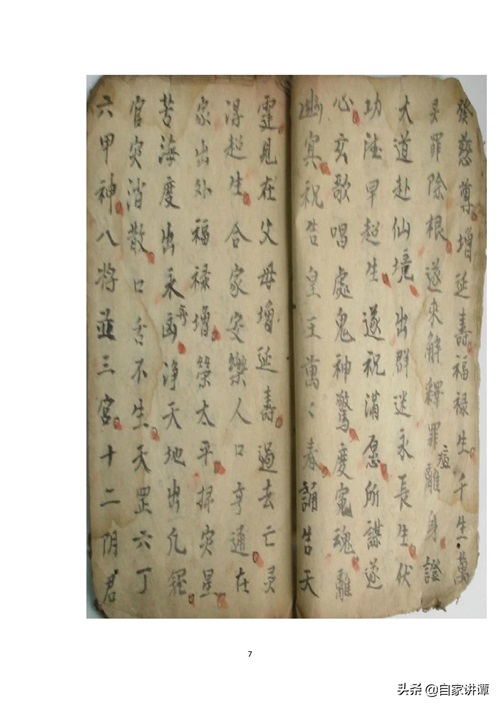 發慈尊增延壽福禄生千生萬
災罪除根遂來解釋罪離身證
大道赴仙境出群迷永長生伏
功法早超生遂祝满愿所謀遂
心交歌唱處鬼神驚度寃魂離
幽冥祝告皇王萬〻春誦告天
靈見在父母增延壽過去亡灵
得超生合家安樂人口亨通在
家出外福禄增榮太平掃灾星
苦海度出来凶净天地出凡籠
官灾消散口舌不生天罡六丁
六甲神八将並三宫十二阴君
7
头条 @自家讲谭